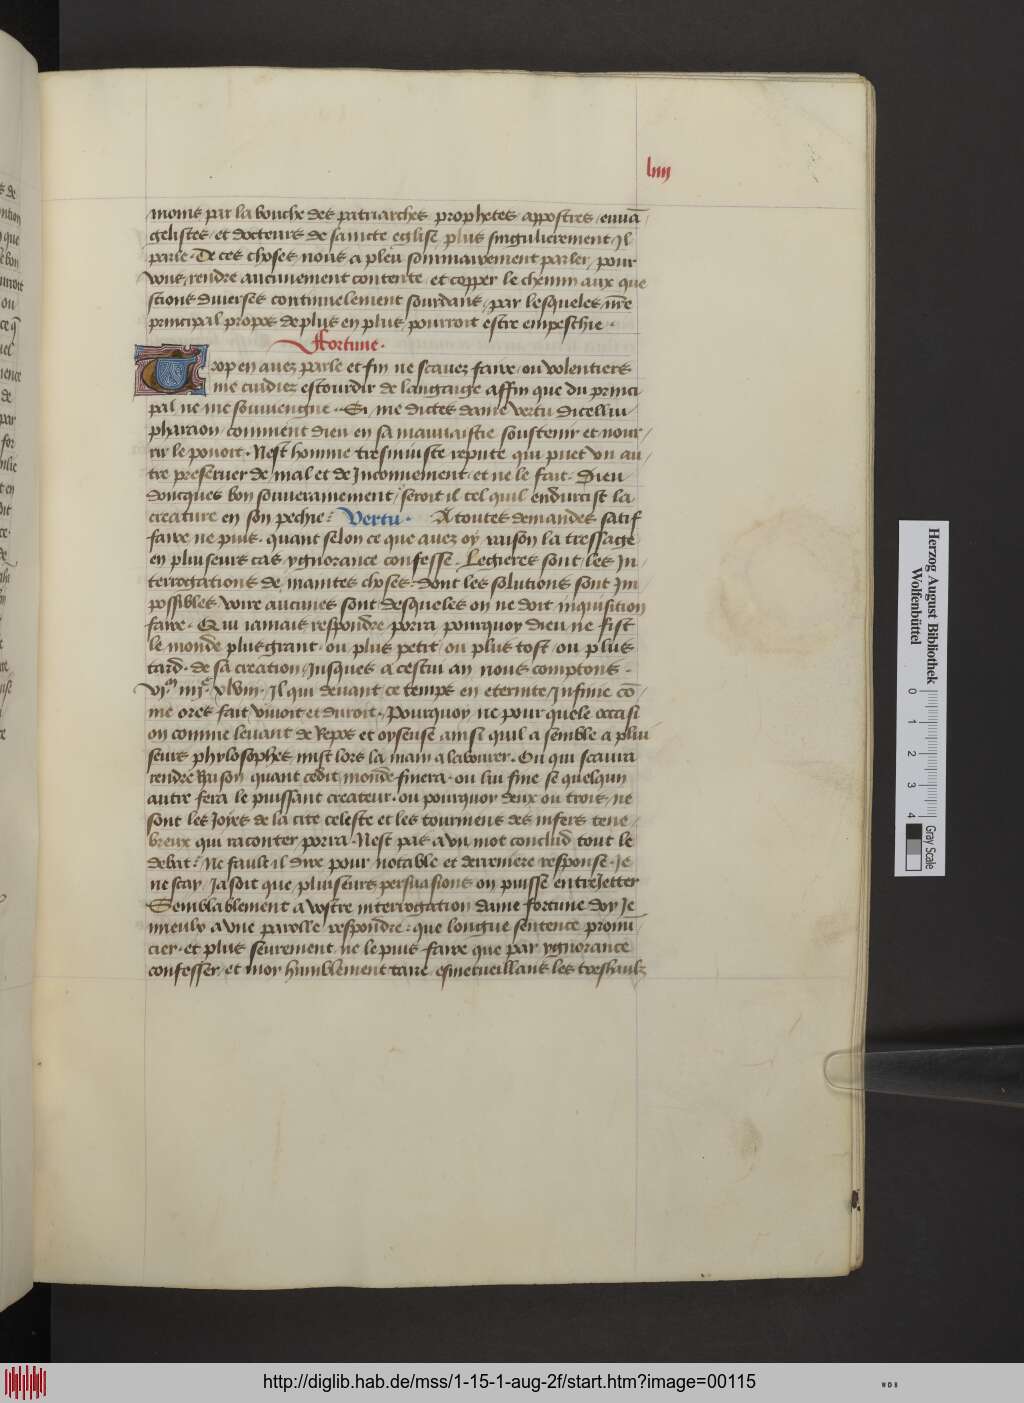 liiii
moins par la bouche des patriarches prophetes appostres / euuā /
gelistes / et docteurs de saincte eglise plus singulierement / Jl
parle · De ces choses nous a pleu sommairement parler / pour
vous / rendre aucunement contente et copper le chemin aux que
stions diuerses continuelement sourdans / par lesqueles / nr̄e
principal propos de plus en plus / pourroit estre empeschie ·
Ffortune ·
Trop en auez parle et fin ne scauez faire / ou volentiers
me cuidiez estourdir de langaige affin que du princi
pal ne me souuiengne · Si / me dictes dame vertu dicellui
pharaon / comment dieu en sa mauuaistie soustenir et nour /
rir le pouoit · Nest homme tresiniuste repute qui puet vn au /
tre preseruer de mal et de Jnconuenient / et ne le fait · Dieu
doncques bon souuerainement / seroit il tel quil endurcist la
creature en son pechie ? Vertu · A toutes demandes satif
faire ne puis · quant selon ce que auez oy raison la tressage
en pluiseurs cas ygnorance confesse · Legieres sont / les Jn /
terrogations de maintes choses · dont les solutions sont Jm
possibles / voire aucunes sont desqueles on ne doit inquisition
faire · Qui iamais respondre porra pourquoy dieu ne fist
le monde plus grant / ou plus petit / ou plus tost / ou plus
tard · de sa creation / Jusques a cestui an nous comptons ·
vjm iiijc xlviij · Jl qui deuant ce temps en eternite / Jnfinie cō /
me ores fait viuoit et duroit · Pourquoy ne pour quele occasi
on comme leuant de Repos et oyseuse ainsi quil a semble a plui
seurs phylosophes mist lors la main a labourer · Ou qui scaura
rendre Raison quant cedit monde finera / ou lui fine se quelqun
autre fera le puissant createur / ou pourquoy deux ou trois / ne
sont les Joyes de la cite celeste et les tourmens des infers tene /
breux qui raconter porra · Nest pas a vn mot conclud tout le
debat ? Ne fault il dire pour notable et derreniere response · Je
ne scay / Ja soit que / pluiseurs persuasions on puisse entreJetter
Semblablement a vostre interrogation dame fortune doy Je
mieulx a vne parolle respondre : que longue sentence pronū
cier · et plus seurement ne le puis faire que par ygnorance
confesser / et moy humblement taire esmerueillans les treshaulz
Herzog August Bibliothek
Wolfenbüttel
0 1 2 3 4
Gray Scale
http://diglib.hab.de/mss/1-15-1-aug-2f/start.htm?image=00115